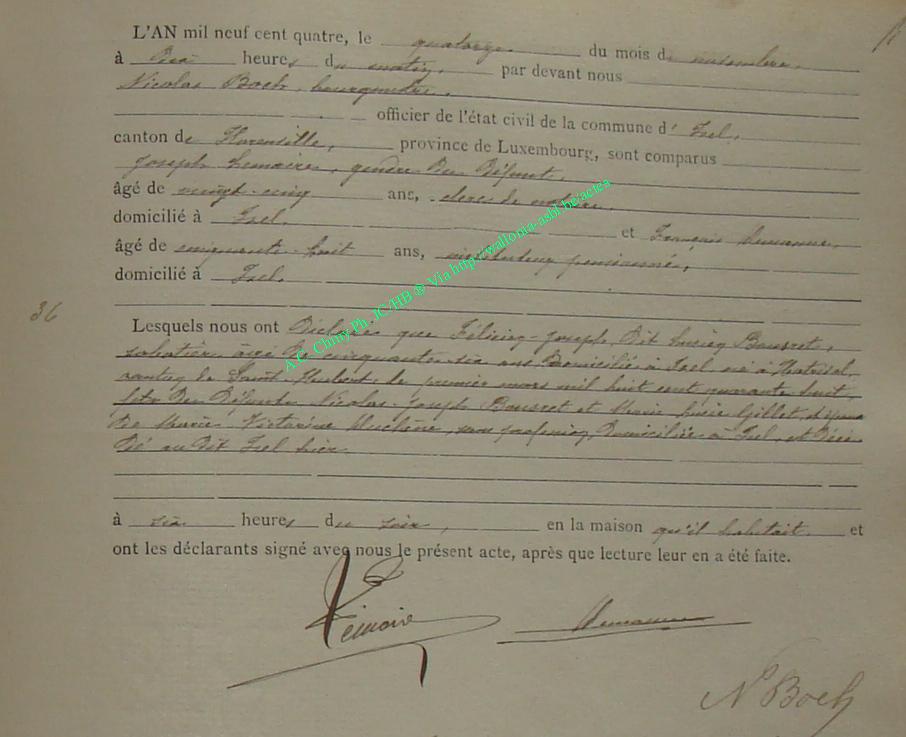 L'AN mil neuf cent quatre, le quatorze du mois de novembre,
à dix heures du matin, par devant nous
Nicolas Boch, bourgmestre,
officier de l'état civil de la commune d'Izel,
canton de Florenville, province de Luxembourg, sont comparus
Joseph Lemaire, gendre du défunt,
âgé de vingt-cinq ans, clerc de notaire,
domicilié à Izel et François
âgé de cinquante-huit ans, pensionné,
domicilié à Izel.
36
Lesquels nous ont déclaré que Félicien-Joseph, dit Lucien Bousret,
sabotier, âgé de cinquante-six ans, domicilié à Izel, né à Hatrival,
canton de Saint-Hubert, le premier mars mil huit cent quarante-huit,
fils des défunts Nicolas-Joseph Bousret et Marie Lucie Gillet, époux
de Marie Victorine Duchêne, sans profession, domiciliée à Izel, est décé-
dé au dit Izel hier
à six heures du soir, en la maison qu'il habitait et
ont les déclarants signé avec nous le présent acte, après que lecture leur en a été faite.
Lemaire
N Boch
A.C. Chiny Ph. IC/HB ® Via http://wallonia-asbl.be/actea